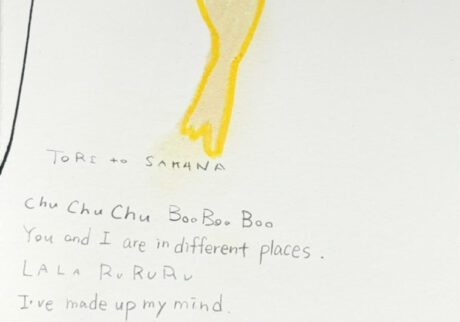 TORI to SAKANA
Chu Chu Chu Boo Boo Boo
You and I are in different places.
LALA RuRuRu
I've made up my mind.